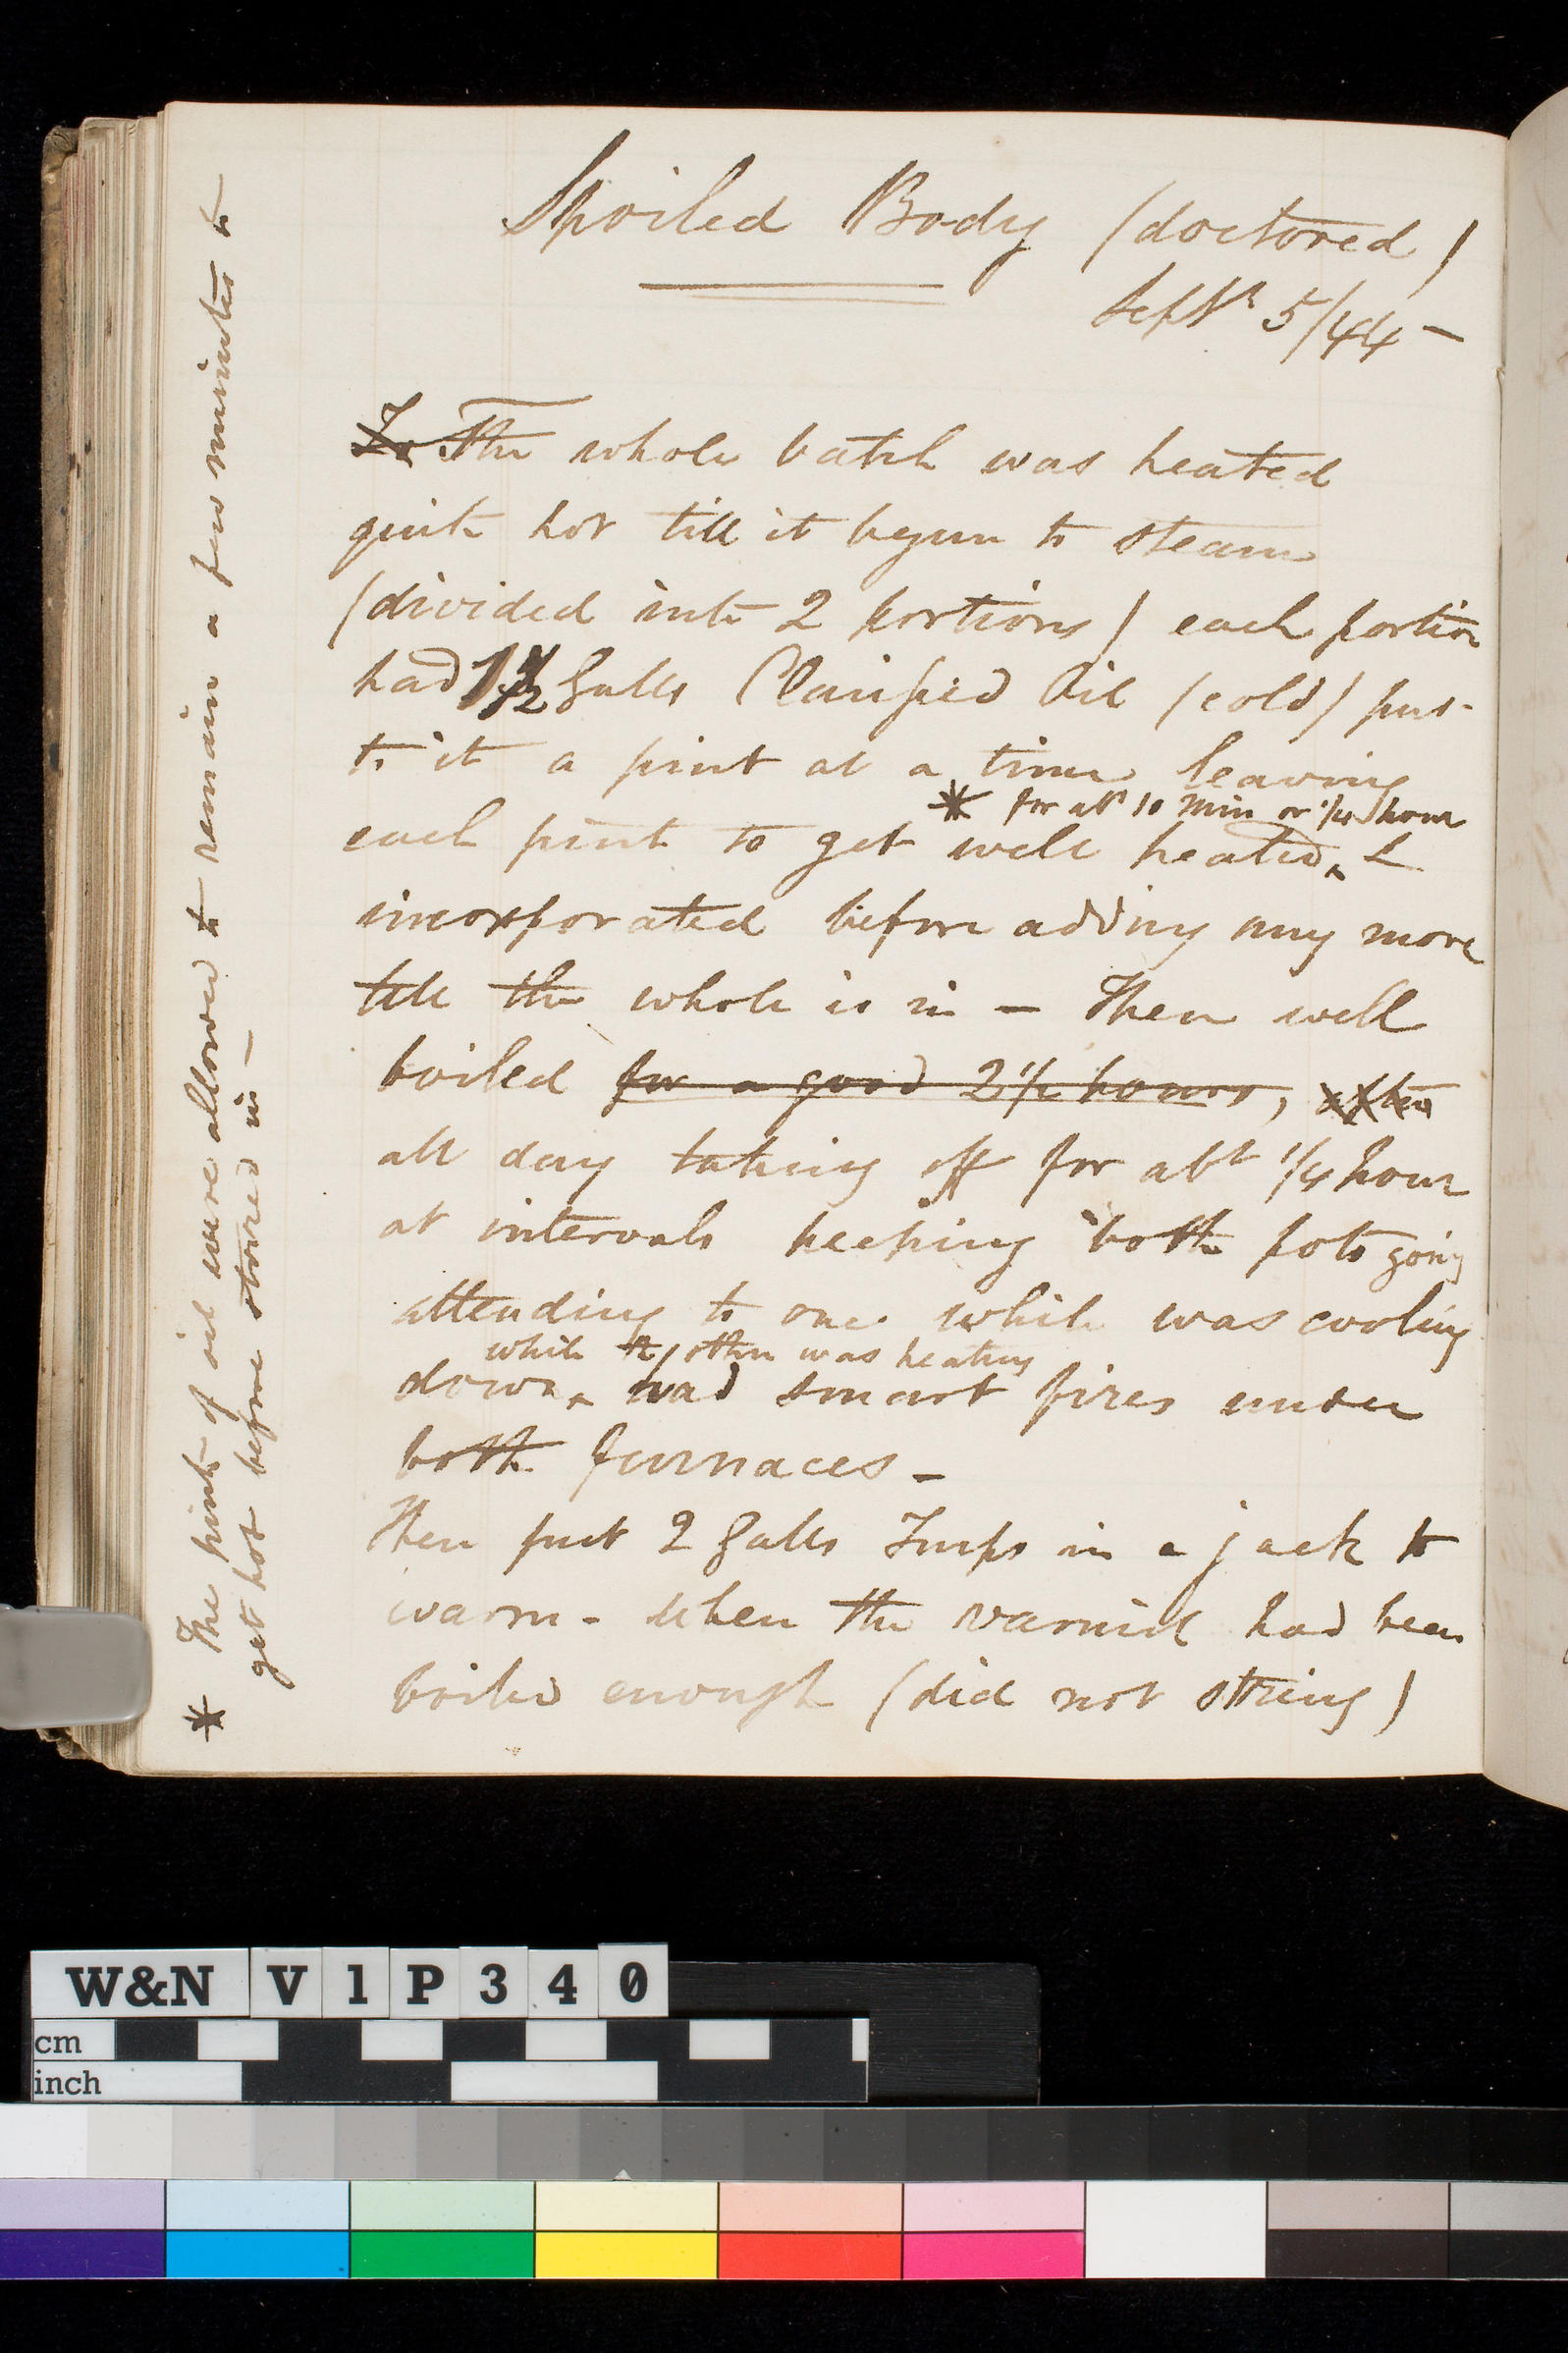 Spoiled Body (doctored)
Septr 5/44 -
To The whole batch was heated
quite hot till it begun to steam
(divided into 2 portions) each portion
had 1 1/2 Galls Clarified Oil (cold) put
to it a pint at a time leaving
* for abt 10 min or 1/4 hour
each pint to get well heated ^ &
incorporated before adding any more
till the whole is in - Then well
boiled for a good 2 1/2 hours, after
all day taking off for abt 1/4 hour
at intervals keeping both pots going
attending to one while was cooling
while the other was heating
down ^ had smart fires under
both furnaces -
Then put 2 Galls Turps in a jack to
warm - when the varnish had been
boiled enough (did not string)
* The pints of oil were allowed to remain a few minutes to
get hot before stirred in -
W&N V 1 P 3 4 0
cm
inch